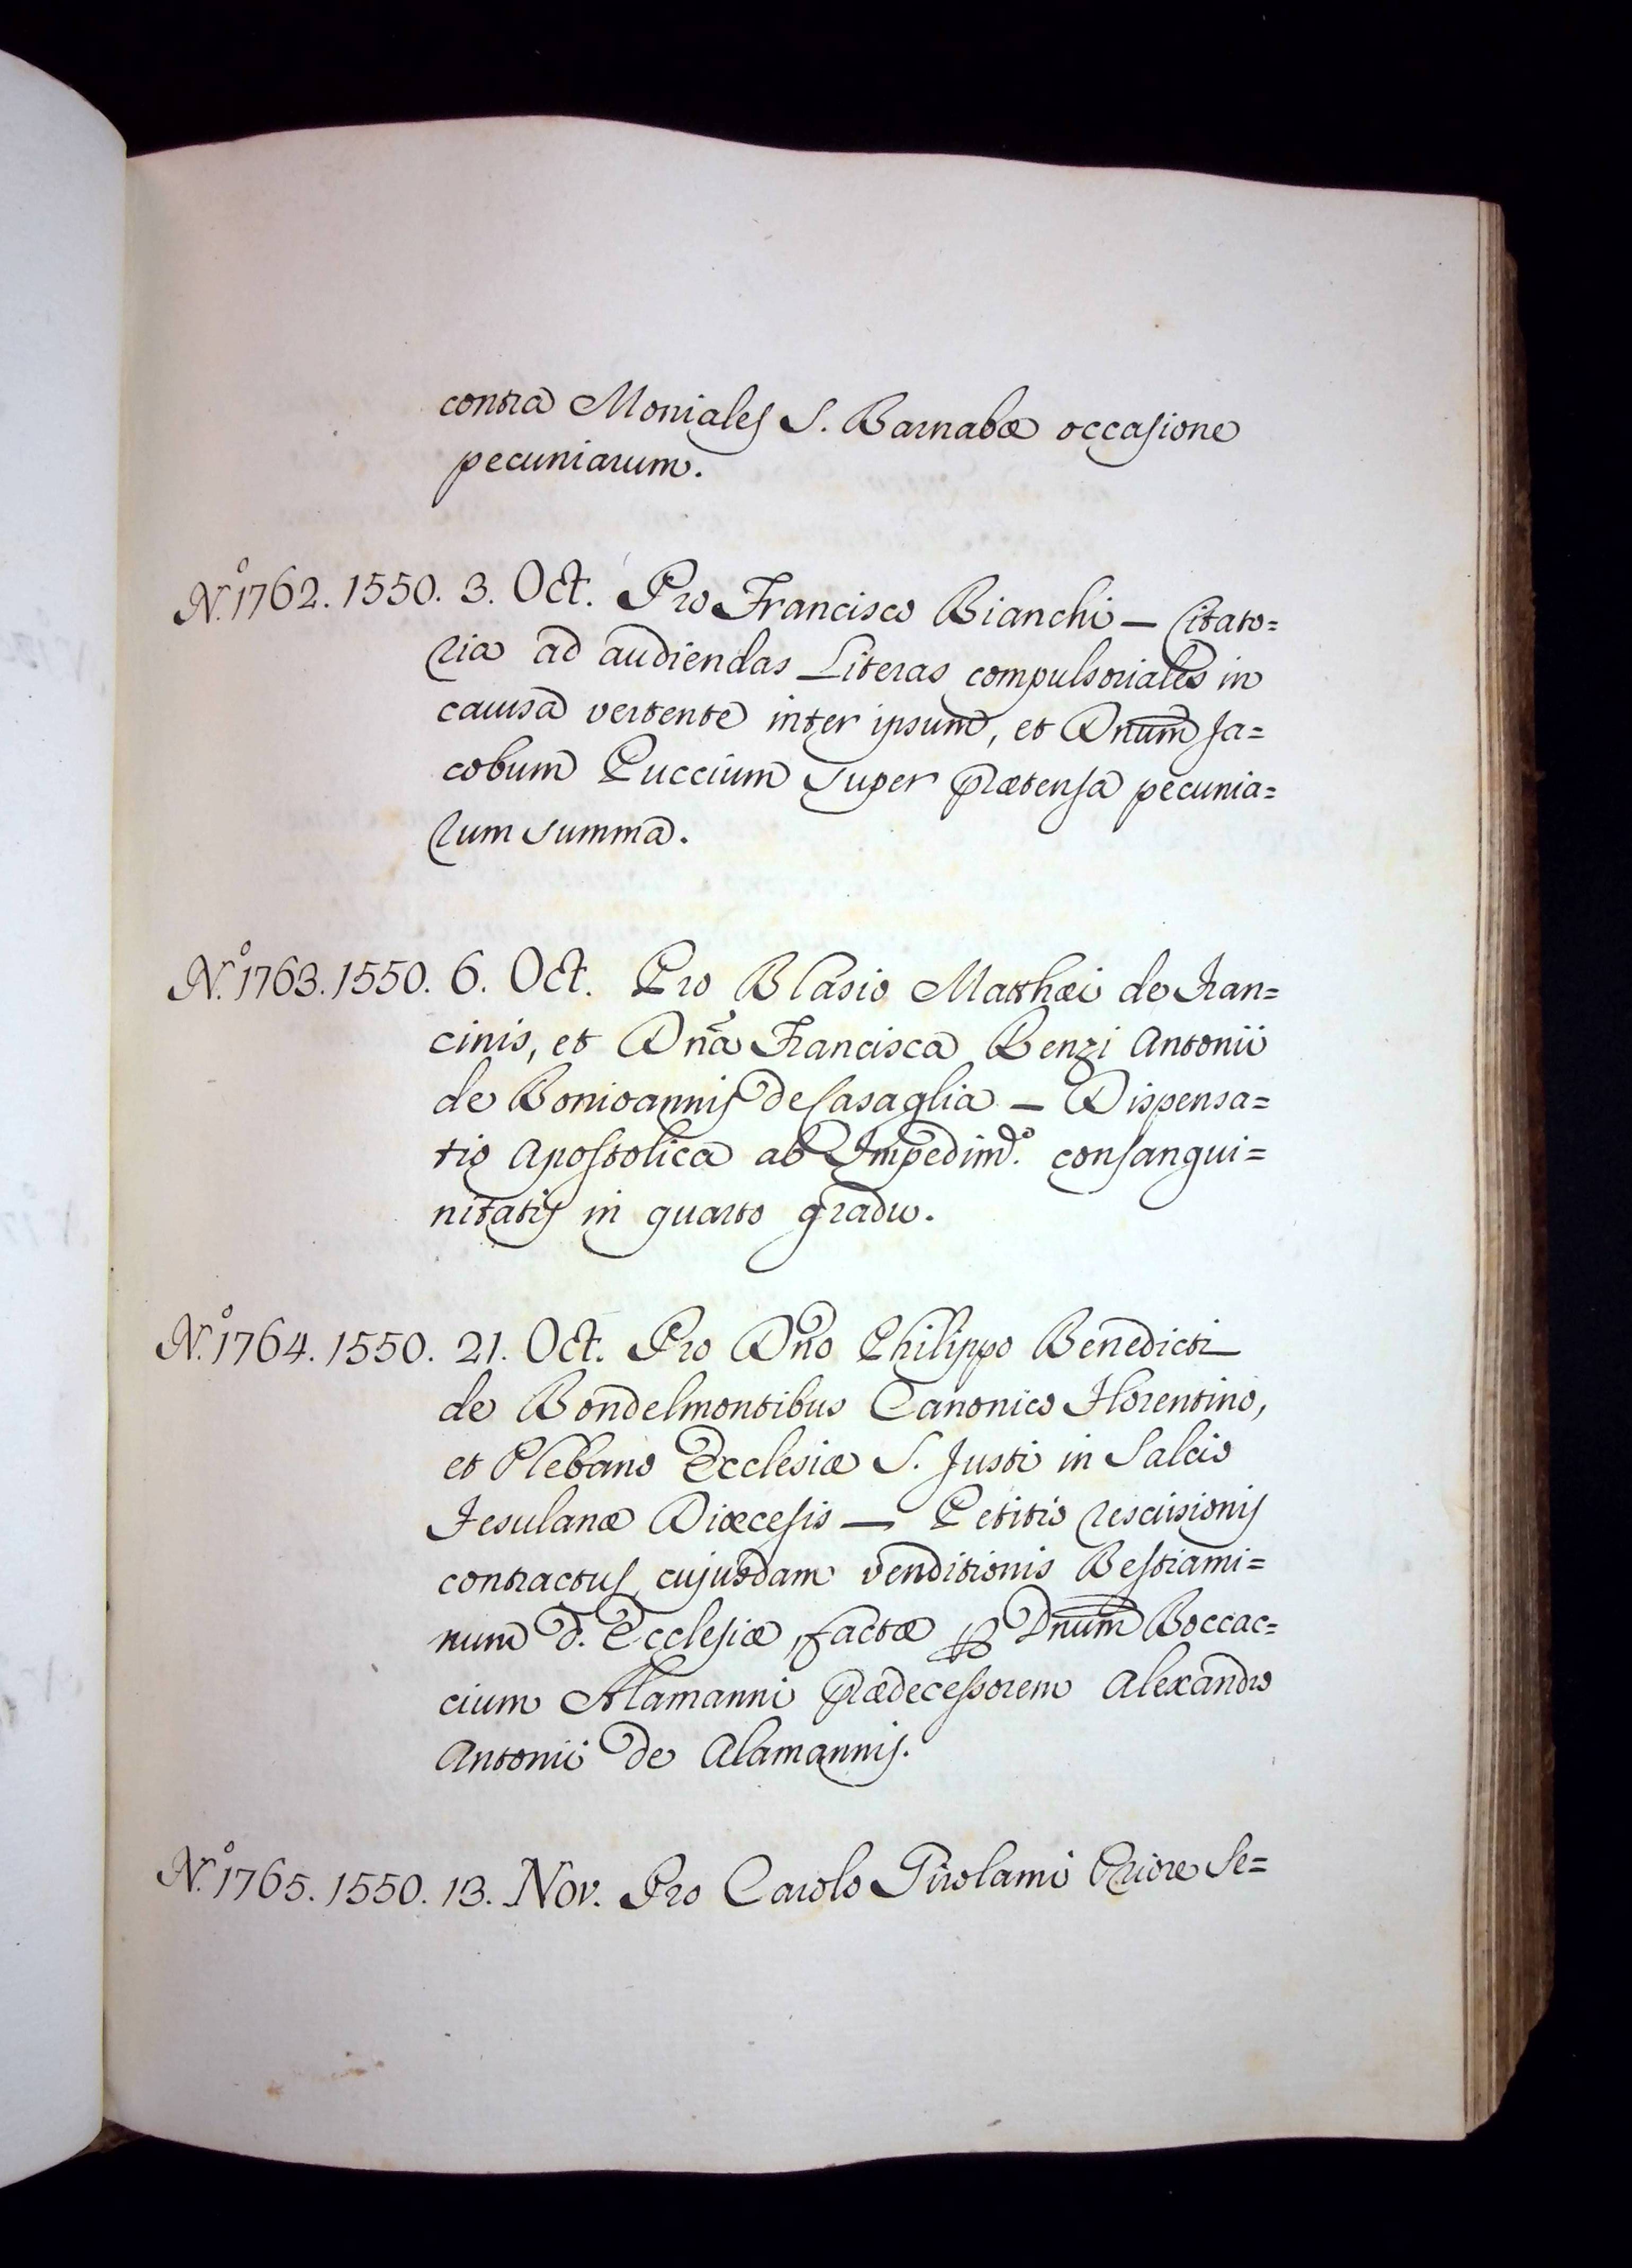 contra Moniales S. Barnabæ occasione
pecuniarum.
N.º 1762. 1550. 3. Oct. Pro Francisco Bianchi — Citato=
ria ad audiendas Literas compulsoriales in
causa vertente inter ipsum, et Dnum Ja=
cobum Puccium super prætensa pecunia=
rum summa.
N.º 1763. 1550. 6. Oct. Pro Blasio Matthæi de Fran=
cinis, et Dna Francisca Renzi Antonii
de Bonioannis de Casaglia — Dispensa=
tio Apostolica ab Impedimto. consangui=
nitatis in quarto gradu.
N.º 1764. 1550. 21. Oct. Pro Dno Philippo Benedicti
de Bondelmontibus Canonico Florentino,
et Plebano Ecclesiæ S. Justi in Salcio
Fesulanæ Diœcesis — Petitio rescisionis
contractus cujusdam venditionis Bestiami=
num d. Ecclesiæ, factæ p Dnum Boccac=
cium Alamanni prædecessorem Alexandro
Antonii de Alamannis.
N.º 1765. 1550. 13. Nov. Pro Carolo Girolami Priore Se=